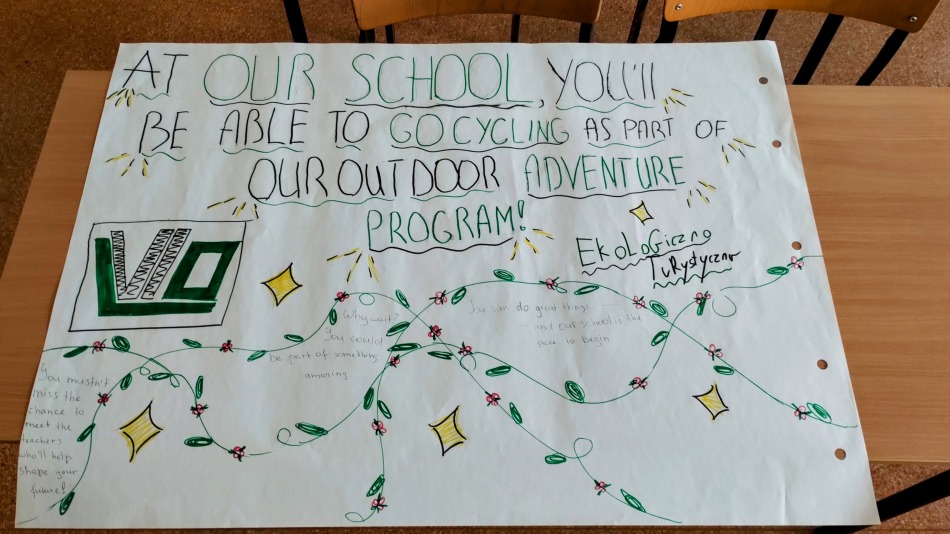 AT OUR SCHOOL, YOU'll
BE ABLE TO GO CYCLING AS PART OF
OUR OUTDOOR ADVENTURE
PROGRAM!
EkoloGiczno
TuRystyczno
Why wait?
You could
be part of something
amazing
You can do great things
and our school is the
place to begin
You mustn't
miss the
chance to
meet the
teachers
who'll help
shape your
future!